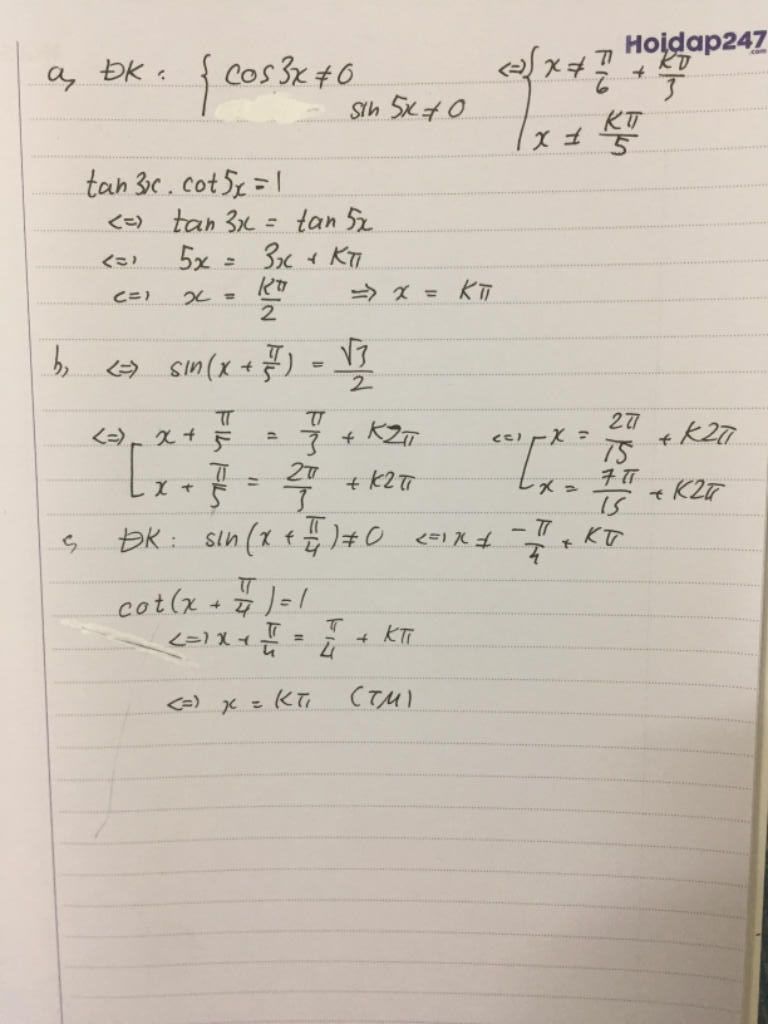 Hoidap247
.com
a, ĐK : { cos3x ≠ 0 <=> { x ≠ π/6 + Kπ/3
sin 5x ≠ 0 x ≠ Kπ/5
tan 3x . cot5x = 1
<=> tan 3x = tan 5x
<=> 5x = 3x + Kπ
<=> x = Kπ/2 => x = Kπ
b, <=> sin(x + π/5) = √3/2
<=> [ x + π/5 = π/3 + K2π <=> [ x = 2π/15 + K2π
x + π/5 = 2π/3 + K2π x = 7π/15 + K2π
c, ĐK : sin(x + π/4) ≠ 0 <=> x ≠ -π/4 + Kπ
cot(x + π/4) = 1
<=> x + π/4 = π/4 + Kπ
<=> x = Kπ (TM)